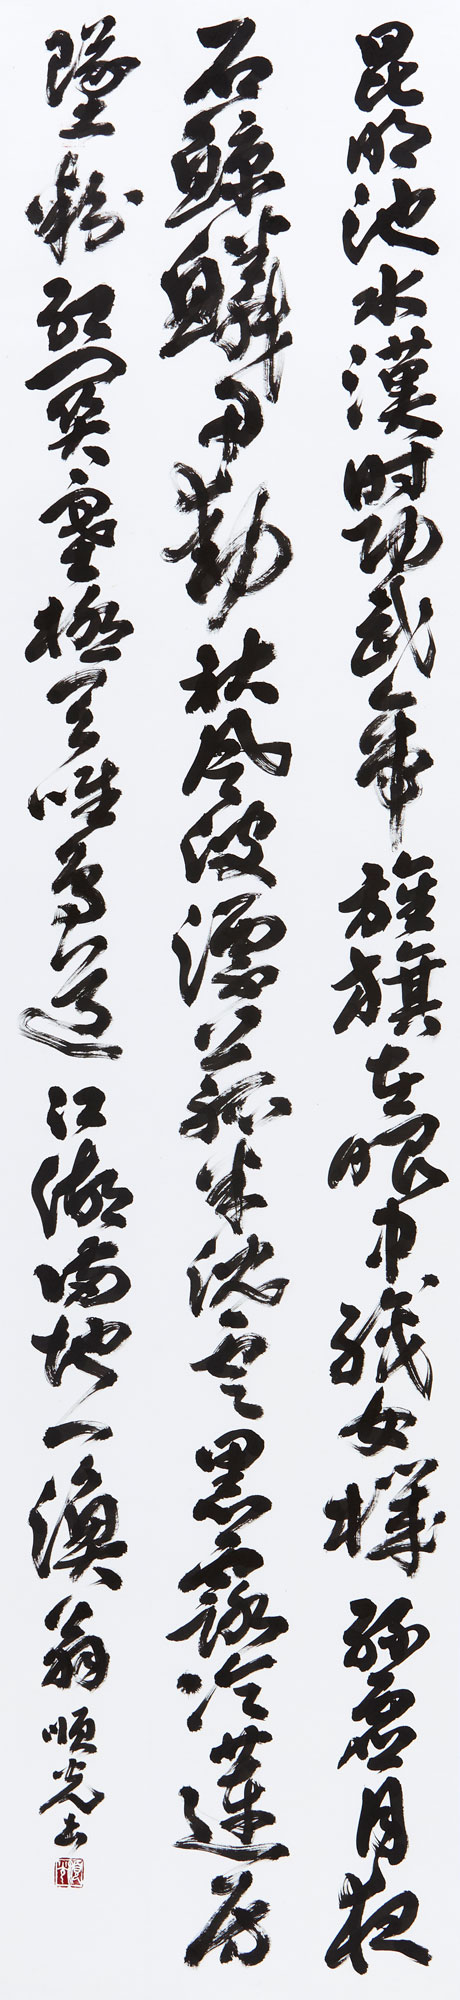 昆明池水漢時功武帝旌旗在眼中織女機絲虛月夜
石鯨鱗甲動秋風波漂菰米沈雲黑露冷蓮房
墜粉紅關塞極天唯鳥道江湖滿地一漁翁 順光書